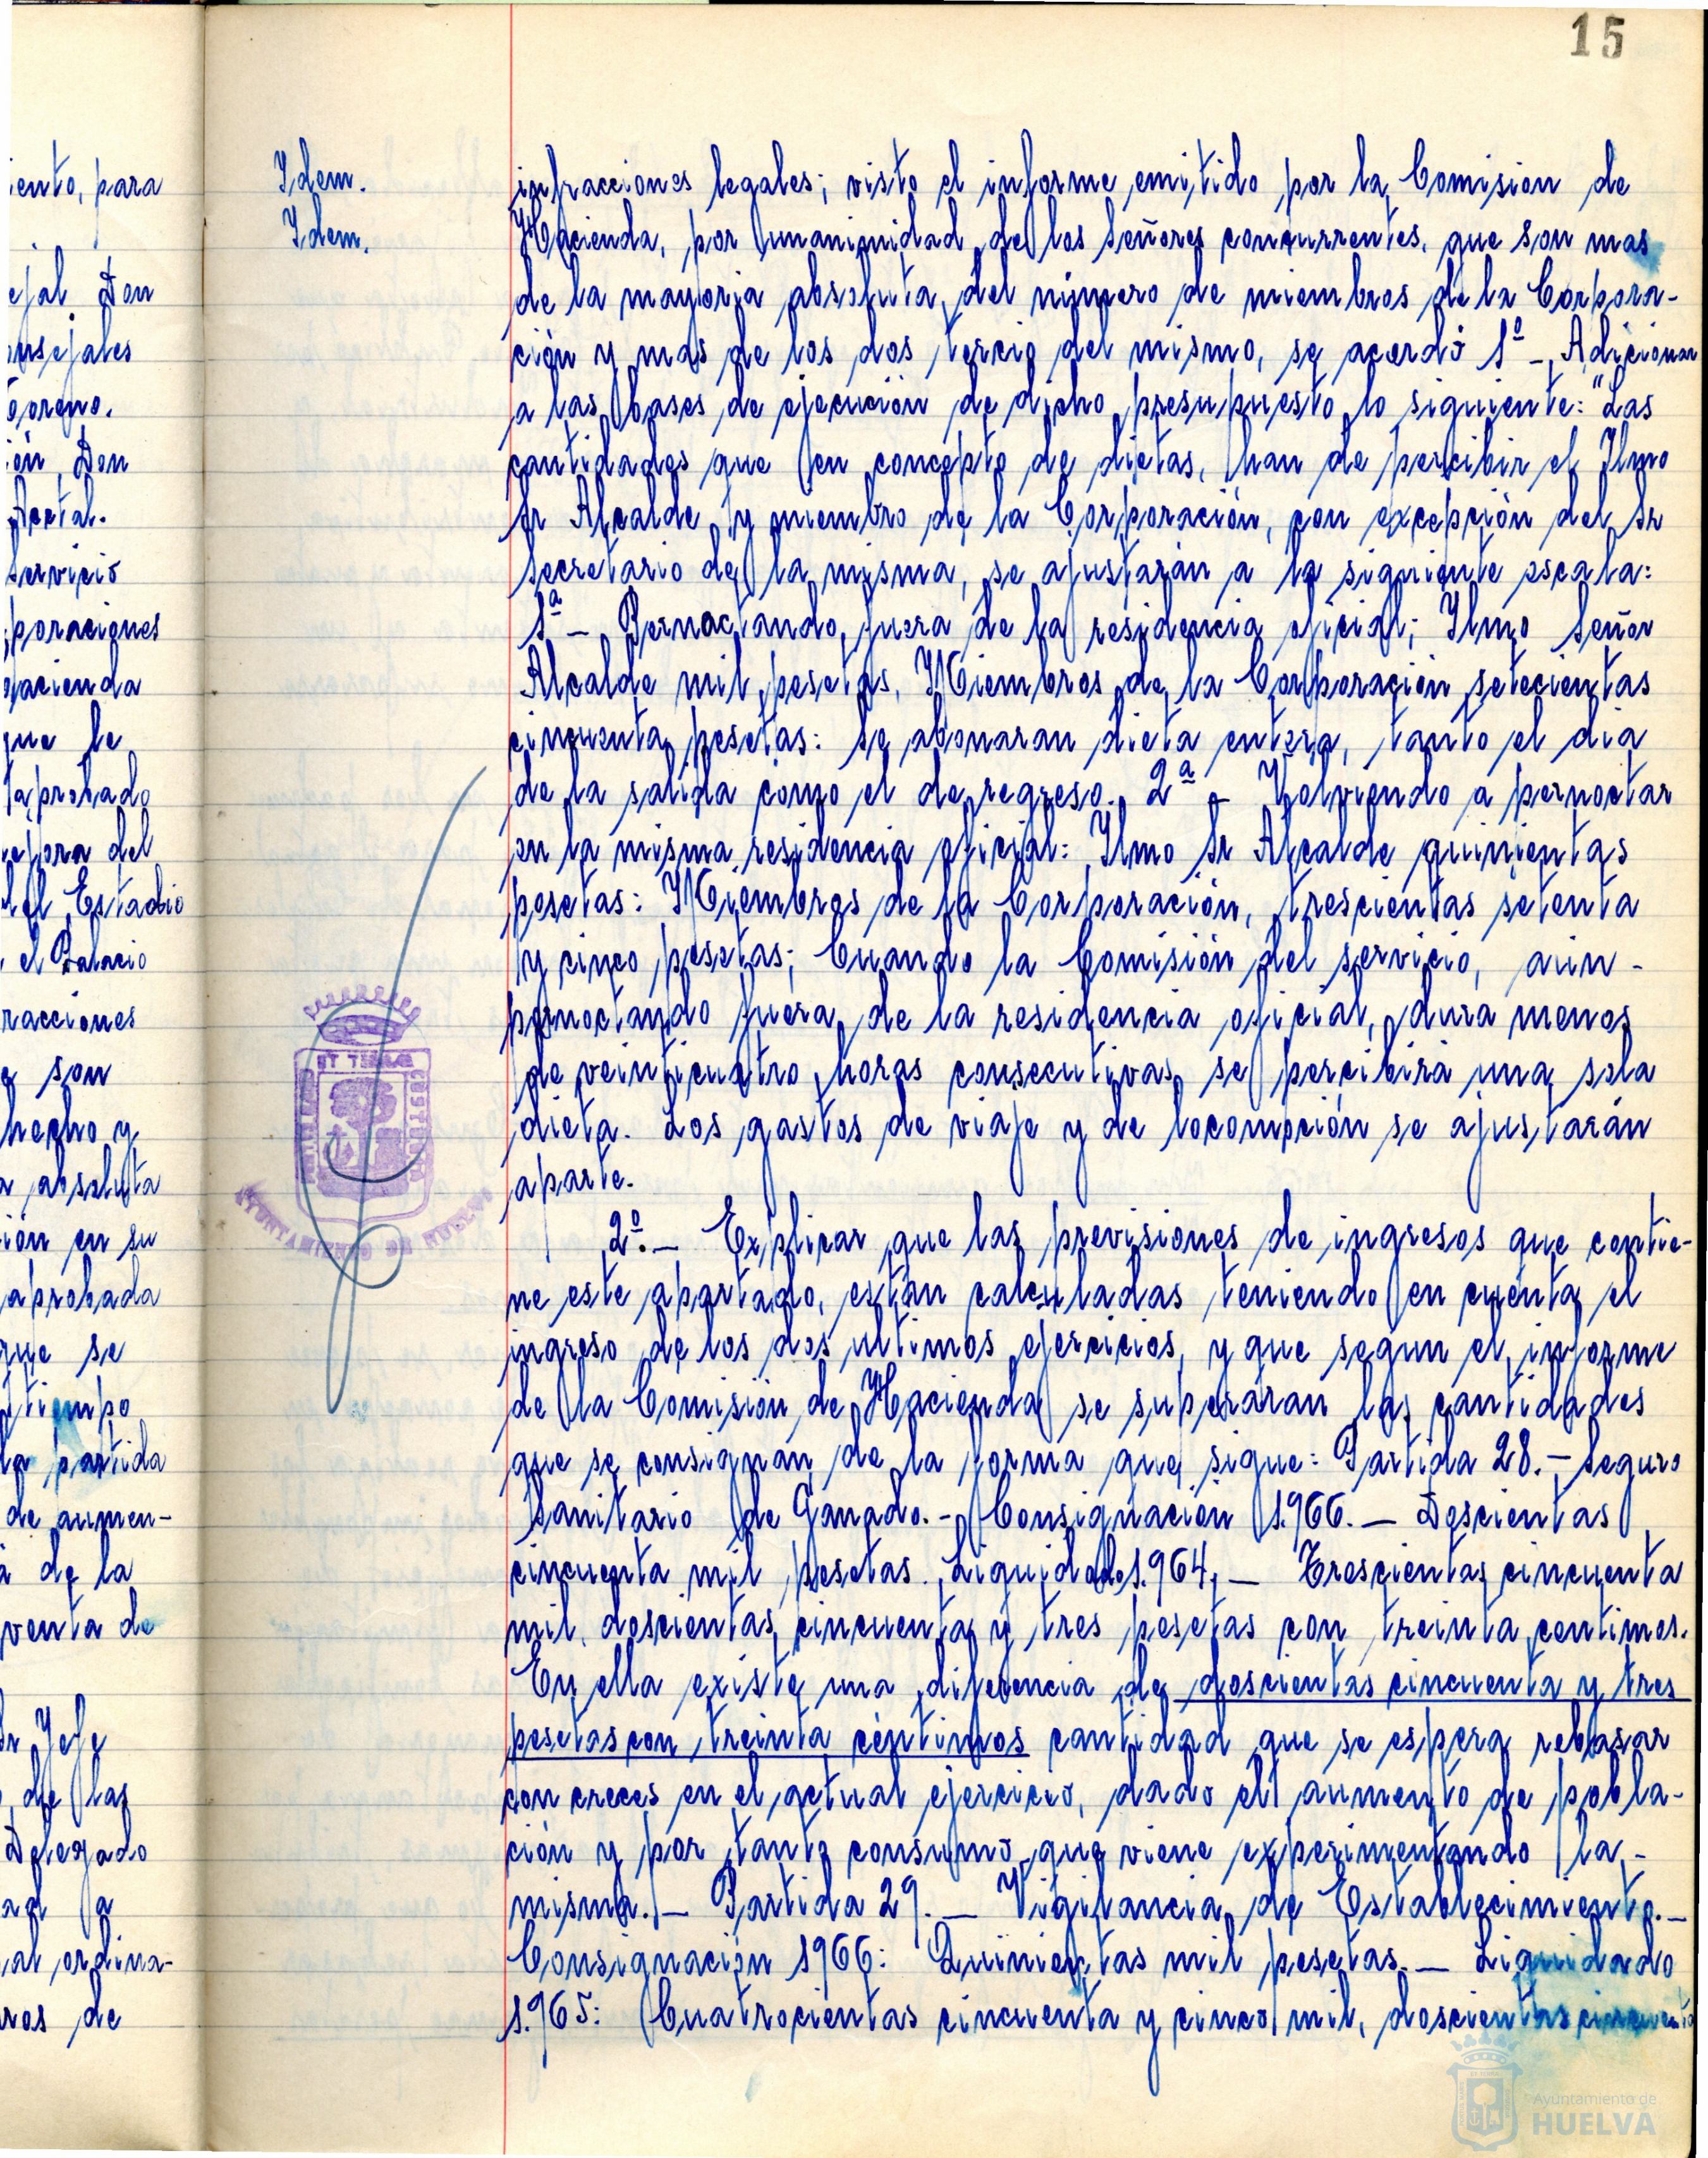 15
iento, para
ejal Don
onsejales
Moreno.
ión, Don
Acctal.
Servicio
poraciones
Hacienda
que le
aprobado
el Estadio
el Palacio
racciones
e son
hecho y
a absoluta
ión en su
aprobada
que se
tiempo
la partida
de aumen-
a de la
venta de
Sr Jefe
de las
Delegado
ad a
al ordina-
ros de
Idem.
Idem.
infracciones legales; visto el informe emitido por la Comision de
Hacienda, por unanimidad de los Señores concurrentes, que son mas
de la mayoria absoluta, del número de miembros de la Corpora-
ción y mas de los dos tercio del mismo, se acordó 1º -, Adicionar
a las bases de ejecución de dicho presupuesto lo siguiente: "Las
cantidades que en concepto de dietas, han de percibir el Ilmo
Sr Alcalde y miembro de la Corporación, con excepción del Sr
Secretario de la misma, se ajustarán a la siguiente escala:
1ª - Pernoctando, fuera de la residencia oficial; Ilmo Señor
Alcalde mil pesetas, Miembros de la Corporación setecientas
cincuenta pesetas: Se abonaran dieta entera, tanto el dia
de la salida como el de regreso. 2ª - Volviendo a pernoctar
en la misma residencia oficial: Ilmo Sr Alcalde quinientas
pesetas: Miembros de la Corporación, trescientas setenta
y cinco pesetas; Cuando la Comisión del servicio, aún -
pernoctando fuera de la residencia oficial, dura menos
de veinticuatro horas consecutivas, se percibirá una sola
dieta. Los gastos de viaje y de locomoción se ajustarán
aparte.
2º. - Explicar que las previsiones de ingresos que contie-
ne este apartado, están calculadas teniendo en cuenta el
ingreso de los dos ultimos ejercicios, y que segun el informe
de la Comisión de Hacienda se superaran las cantidades
que se consignan de la forma que sigue: Partida 28. - Seguro
Sanitario de Ganado. - Consignación 1.966. - Doscientas
cincuenta mil pesetas. Liquidado 1.964, - Trescientas cincuenta
mil, doscientas cincuenta y tres pesetas con treinta centimos.
En ella existe una diferencia de doscientas cincuenta y tres
pesetas con treinta céntimos cantidad que se espera rebasar
con creces en el actual ejercicio, dado el aumento de pobla-
ción y por tanto consumo que viene experimentando la -
misma. - Partida 29. - Vigilancia de Establecimiento. -
Consignación 1966: Quinientas mil pesetas. - Liquidado
1.965: Cuatrocientas cincuenta y cinco mil, doscientas cincuenta
AYUNTAMIENTO DE HUELVA
Ayuntamiento de
HUELVA